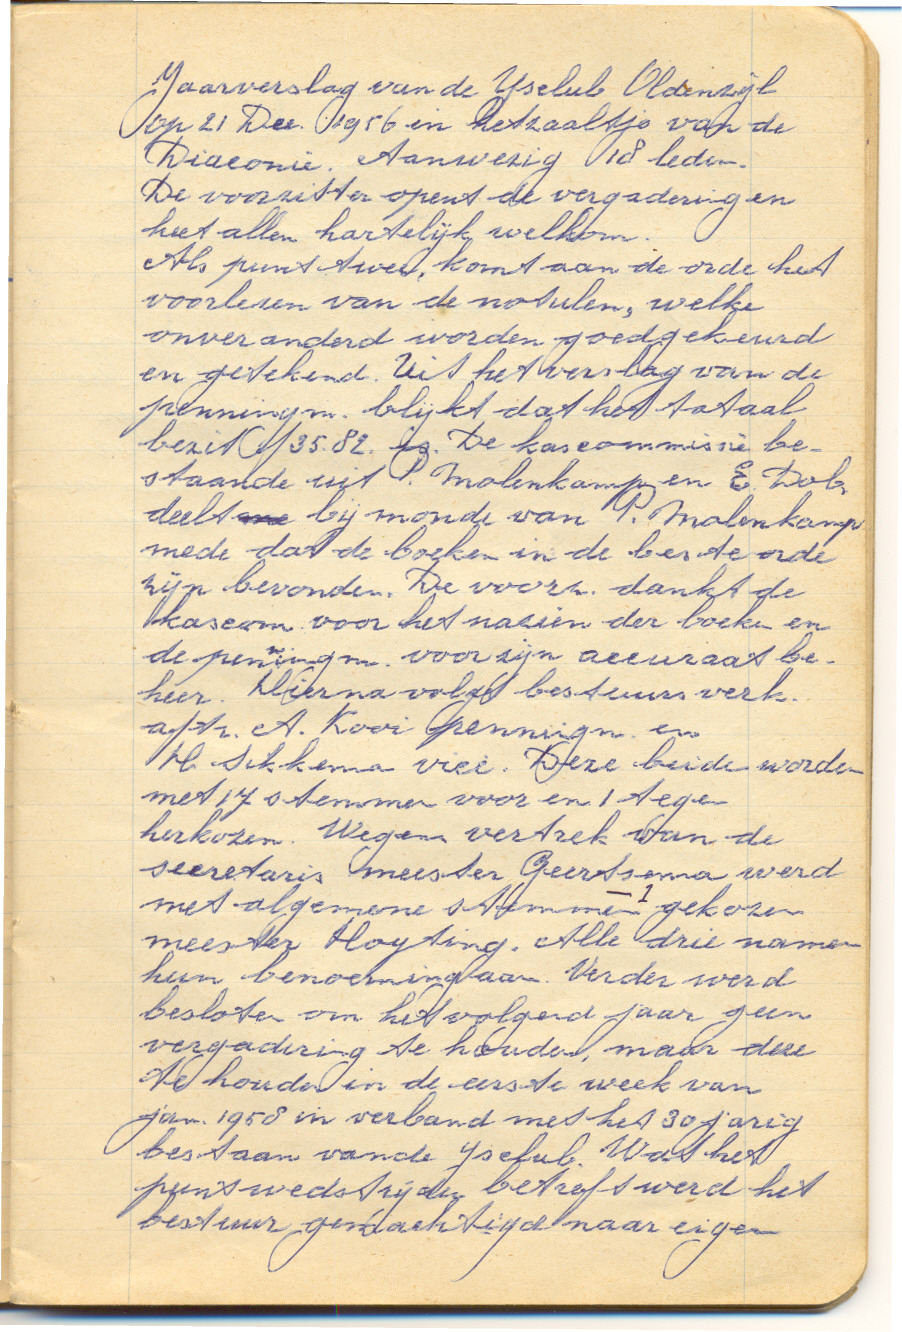 Jaarverslag van de Ysclub Oldenzijl
op 21 Dec. 1956 in het zaaltje van de
Diaconie. Aanwezig 18 leden.
De voorzitter opent de vergadering en
heet allen hartelijk welkom.
Als punt twee, komt aan de orde het
voorlezen van de notulen, welke
onveranderd worden goedgekeurd
en getekend. Uit het verslag van de
penningm. blijkt dat het totaal
bezit f 35.82. is. De kascommissie be-
staande uit P. Molenkamp en E. Dob,
deelt bij monde van P. Molenkamp
mede dat de boeken in de beste orde
zijn bevonden. De voorz. dankt de
kascom. voor het nazien der boeken en
de penningm. voor zijn accuraat be-
heer. Hierna volgt bestuursverk.
aftr. A. Kooi penningm. en
H. Sikkema vice. Deze beide worden
met 17 stemmen voor en 1 tegen
herkozen. Wegens vertrek van de
secretaris meester Geertsema werd
met algemene stemmen -1 gekozen
meester Hoyting. Alle drie namen
hun benoeming aan. Verder werd
besloten om het volgend jaar geen
vergadering te houden, maar deze
te houden in de eerste week van
jan. 1958 in verband met het 30 jarig
bestaan van de Ysclub. Wat het
puntswedstrijden betreft werd het
bestuur gemachtigd naar eigen